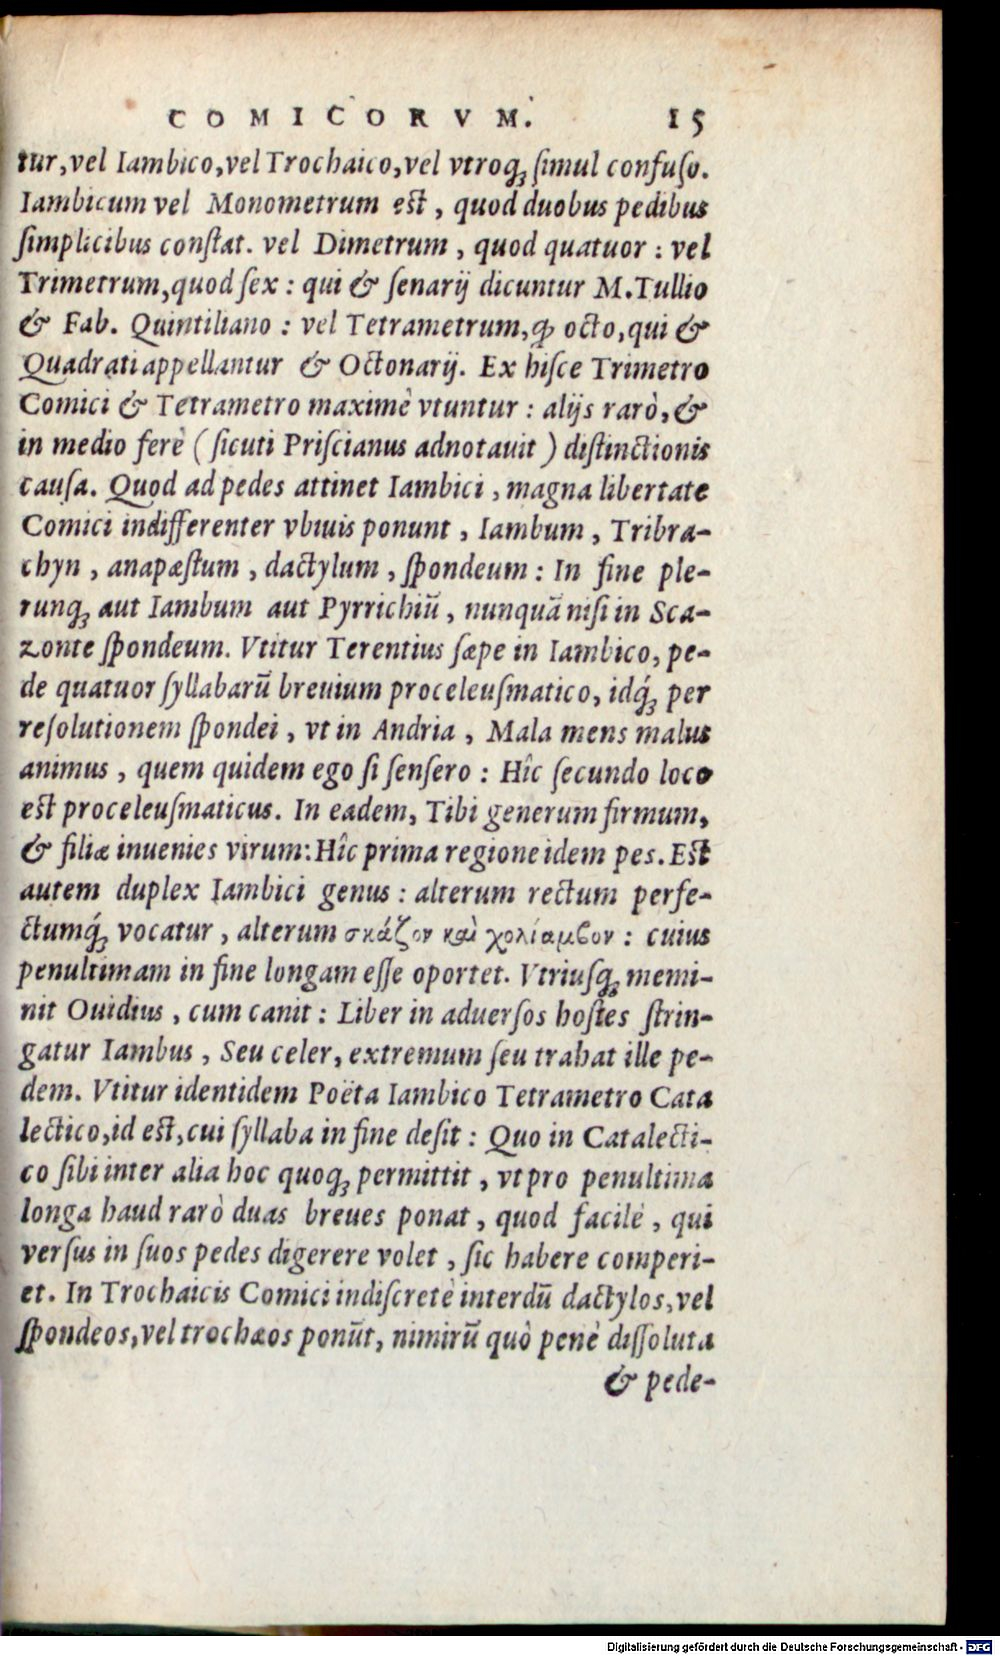 COMICORVM. 15
tur, vel Iambico, vel Trochaico, vel vtroq́ꝫ simul confuso.
Iambicum vel Monometrum est, quod duobus pedibus
simplicibus constat. vel Dimetrum, quod quatuor: vel
Trimetrum, quod sex: qui & senarij dicuntur M. Tullio
& Fab. Quintiliano: vel Tetrametrum, ꝙ octo, qui &
Quadrati appellantur & Octonarij. Ex hisce Trimetro
Comici & Tetrametro maximè vtuntur: alijs rarò, &
in medio ferè (sicuti Priscianus adnotauit) distinctionis
causa. Quod ad pedes attinet Iambici, magna libertate
Comici indifferenter vbiuis ponunt, Iambum, Tribra-
chyn, anapæstum, dactylum, spondeum: In fine ple-
runqꝫ aut Iambum aut Pyrrichiũ, nunquã nisi in Sca-
zonte spondeum. Vtitur Terentius sæpe in Iambico, pe-
de quatuor syllabarũ breuium proceleusmatico, idq́ꝫ per
resolutionem spondei, vt in Andria, Mala mens malus
animus, quem quidem ego si sensero: Hîc secundo loco
est proceleusmaticus. In eadem, Tibi generum firmum,
& filiæ inuenies virum: Hîc prima regione idem pes. Est
autem duplex Iambici genus: alterum rectum perfe-
ctumq́ꝫ vocatur, alterum σκάζον καὶ χολίαμβον: cuius
penultimam in fine longam esse oportet. Vtriusqꝫ memi-
nit Ouidius, cum canit: Liber in aduersos hostes strin-
gatur Iambus, Seu celer, extremum seu trahat ille pe-
dem. Vtitur identidem Poëta Iambico Tetrametro Cata
lectico, id est, cui syllaba in fine desit: Quo in Catalecti-
co sibi inter alia hoc quoqꝫ permittit, vt pro penultima
longa haud rarò duas breues ponat, quod facilè, qui
versus in suos pedes digerere volet, sic habere comperi-
et. In Trochaicis Comici indiscretè interdũ dactylos, vel
spondeos, vel trochæos ponũt, nimirũ quò penè dissoluta
& pede-
Digitalisierung gefördert durch die Deutsche Forschungsgemeinschaft - DFG